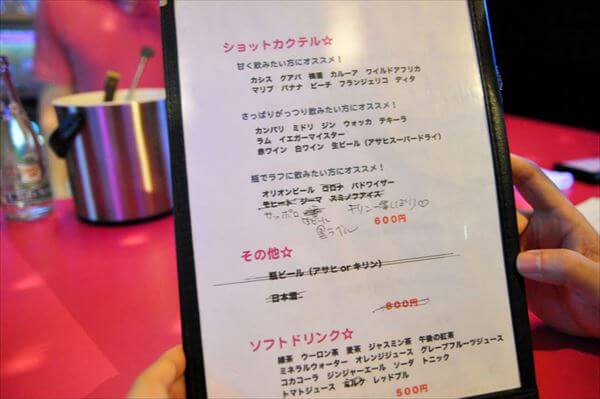 ショットカクテル☆
甘く飲みたい方にオススメ！
カシス グアバ 桃 カルーア ワイルドアフリカ
マリブ バナナ ピーチ フランジェリコ ディタ
さっぱりがっつり飲みたい方にオススメ！
カンパリ ミドリ ジン ウォッカ テキーラ
ラム イエガーマイスター
赤ワイン 白ワイン 生ビール（アサヒスーパードライ）
瓶でラフに飲みたい方にオススメ！
オリオンビール コロナ バドワイザー
モヒート ジーマ スミノフアイス
サッポロ 黒ラベル キリン一番しぼり♡
600円
その他☆
瓶ビール（アサヒ or キリン）
日本酒
800円
ソフトドリンク☆
緑茶 ウーロン茶 麦茶 ジャスミン茶 午後の紅茶
ミネラルウォーター オレンジジュース グレープフルーツジュース
コカコーラ ジンジャーエール ソーダ トニック
トマトジュース ミルク レッドブル
500円